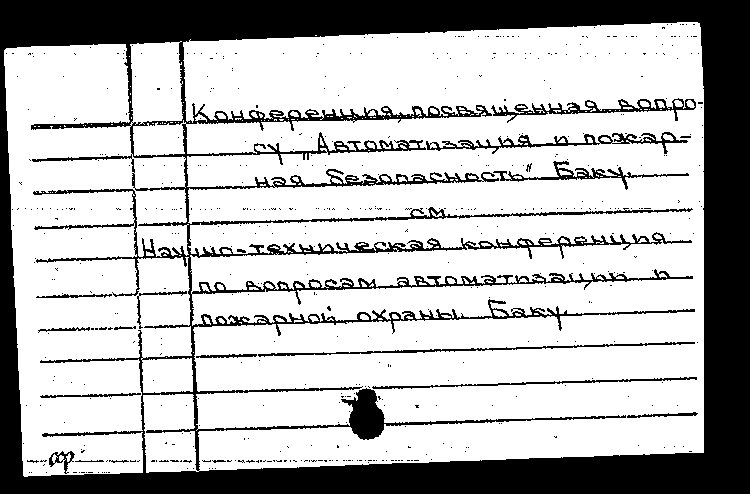 Конференция, посвященная вопро-
су „Автоматизация и пожар-
ная безопасность" Баку.
см.
Научно-техническая конференция
по вопросам автоматизации и
пожарной охраны. Баку.